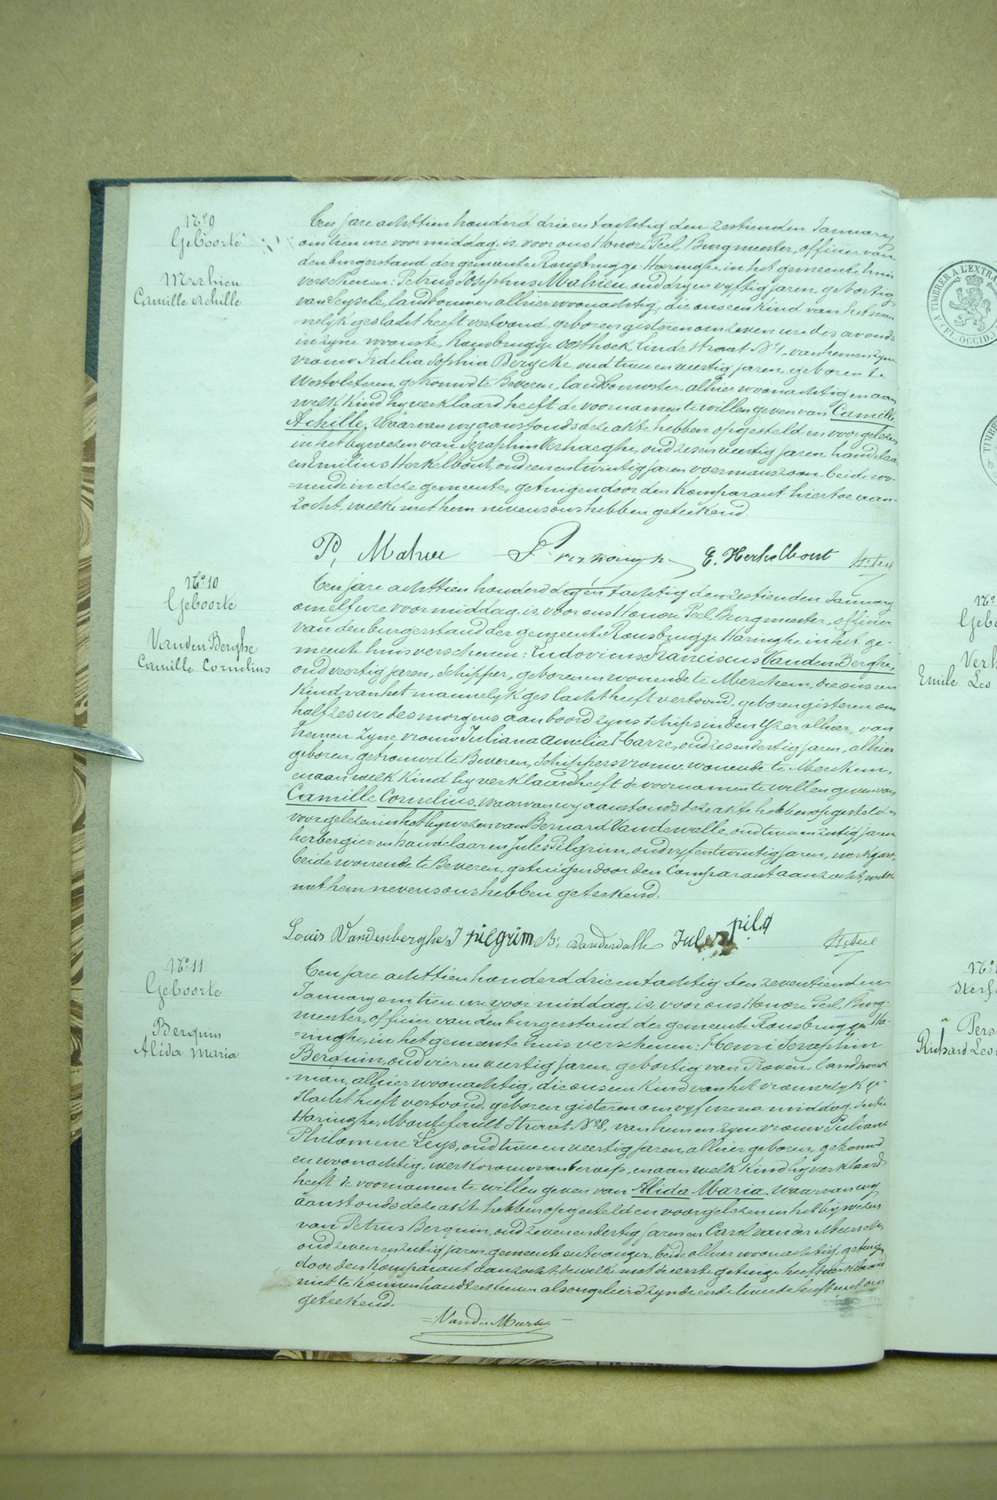 N° 9
Geboorte
Mathieu
Camille Achille
Een jare achttien honderd drie en tachtig den zestienden January
om tien ure voor middag, is voor ons Honoré Peel Burgmeester, officier van
den burgerstand der gemeente Rousbrugge-Haringhe, in het gemeente huis
verschenen: Petrus Josephus Mathieu, oud drij en vyftig jaren, geboortig
van Eysele, landbouwer alhier woonachtig, die ons een kind van het man-
nelyk geslacht heeft vertoond, geboren gisteren om zeven ure des avonds
in zyne wooste, Rousbrugge Oosthoek, Linde straat N° 1, van hem en zyne
vrouw Fidelia Sophia Berycke, oud twee en veertig jaren, geboren te
Westvleteren, getrouwd te Beveren, landbouwster, alhier woonachtig en aan
welk kind hy verklaard heeft de voornamen te willen geven van Camille
Achille, Waarvan wy aanstonds deze akte hebben opgesteld en voorgelezen
in het bywezen van Seraphin Vershaeghe, oud zes en veertig jaren handelaar
en Emilius Herkelbout, oud een en twintig jaren veermans zoon beide wo-
nende in deze gemeente, getuigen door den komparant hiertoe aan-
zocht, welke met hem nevens ons hebben geteekend.
P, Mahieu E. Herkelbout H. Peel
N° 10
Geboorte
Vanden Berghe
Camille Cornelius
Een jare achttien honderd drij en tachtig den zestienden January
om elf ure voor middag, is voor ons Honoré Peel Burgmeester, officier
van den burgerstand der gemeente Rousbrugge Haringhe in het ge-
meente huis verschenen: Ludovicus Franciscus Vanden Berghe,
oud veertig jaren, schipper, geboren en wonende te Merckem, die ons een
kind van het mannelyk geslacht heeft vertoond, geboren gisteren om
half zes ure des morgens aan boord zyns schips in den Yzer alhier, van
hem en zyne vrouw Juliana Amelia Harre, oud zes en dertig jaren, alhier
geboren, getrouwd te Beveren, schippers vrouw, wonende te Merckem,
en aan welk kind hy verklaard heeft de voornamen te willen geven van
Camille Cornelius, waarvan wy aanstonds deze akte hebben opgesteld en
voorgelezen in het bywezen van Bernard Vandewalle, oud twee en zestig jaren
herbergier en handelaar en Jules Pilgrim, oud vyf en twintig jaren, werkman,
beide wonende te Beveren, getuigen door den Comparant aanzocht, welke
met hem nevens ons hebben geteekend.
Louis Vandenberghe J pilgrim B. Vandewalle Jules pilg H. Peel
N° 11
Geboorte
Berquin
Alida Maria
Een jare achttien honderd drie en tachtig den zeventienden
January om tien ure voor middag, is voor ons Honoré Peel Burg-
meester, officier van den burgerstand der gemeente Rousbrugge Ha-
ringhe, in het gemeente huis verschenen: Henri Seraphin
Berquin, oud vier en veertig jaren, geboortig van Proven, landbouw-
man, alhier woonachtig, die ons een kind van het vrouwelyk ge-
slacht heeft vertoond, geboren gisteren om vyf ure na middag, sectie
Haringhe, straat N° 8, van hem en zyne vrouw Juliana
Philomene Leys, oud twee en veertig jaren, alhier geboren, getrouwd
en woonachtig, werkvrouw van beroep, en aan welk kind hy verklaard
heeft de voornamen te willen geven van Alida Maria. Waarvan wy
aanstonds deze akte hebben opgesteld en voorgelezen in het bywezen
van Petrus Berquin, oud zeven en dertig jaren en Carel Vander Meersch,
oud zeven en zestig jaren, gemeente ontvanger, beide alhier woonachtig, getuigen
door den komparant aanzocht, dewelke met de eerste getuige heeft verklaard
niet te konnen handteekenen als ongeleerd zynde en de tweede heeft met ons
geteekend.
Vander Meersch
N°
Gebo
Verh
Emile Leo
N°
Sterf
Pero
Richard Leo